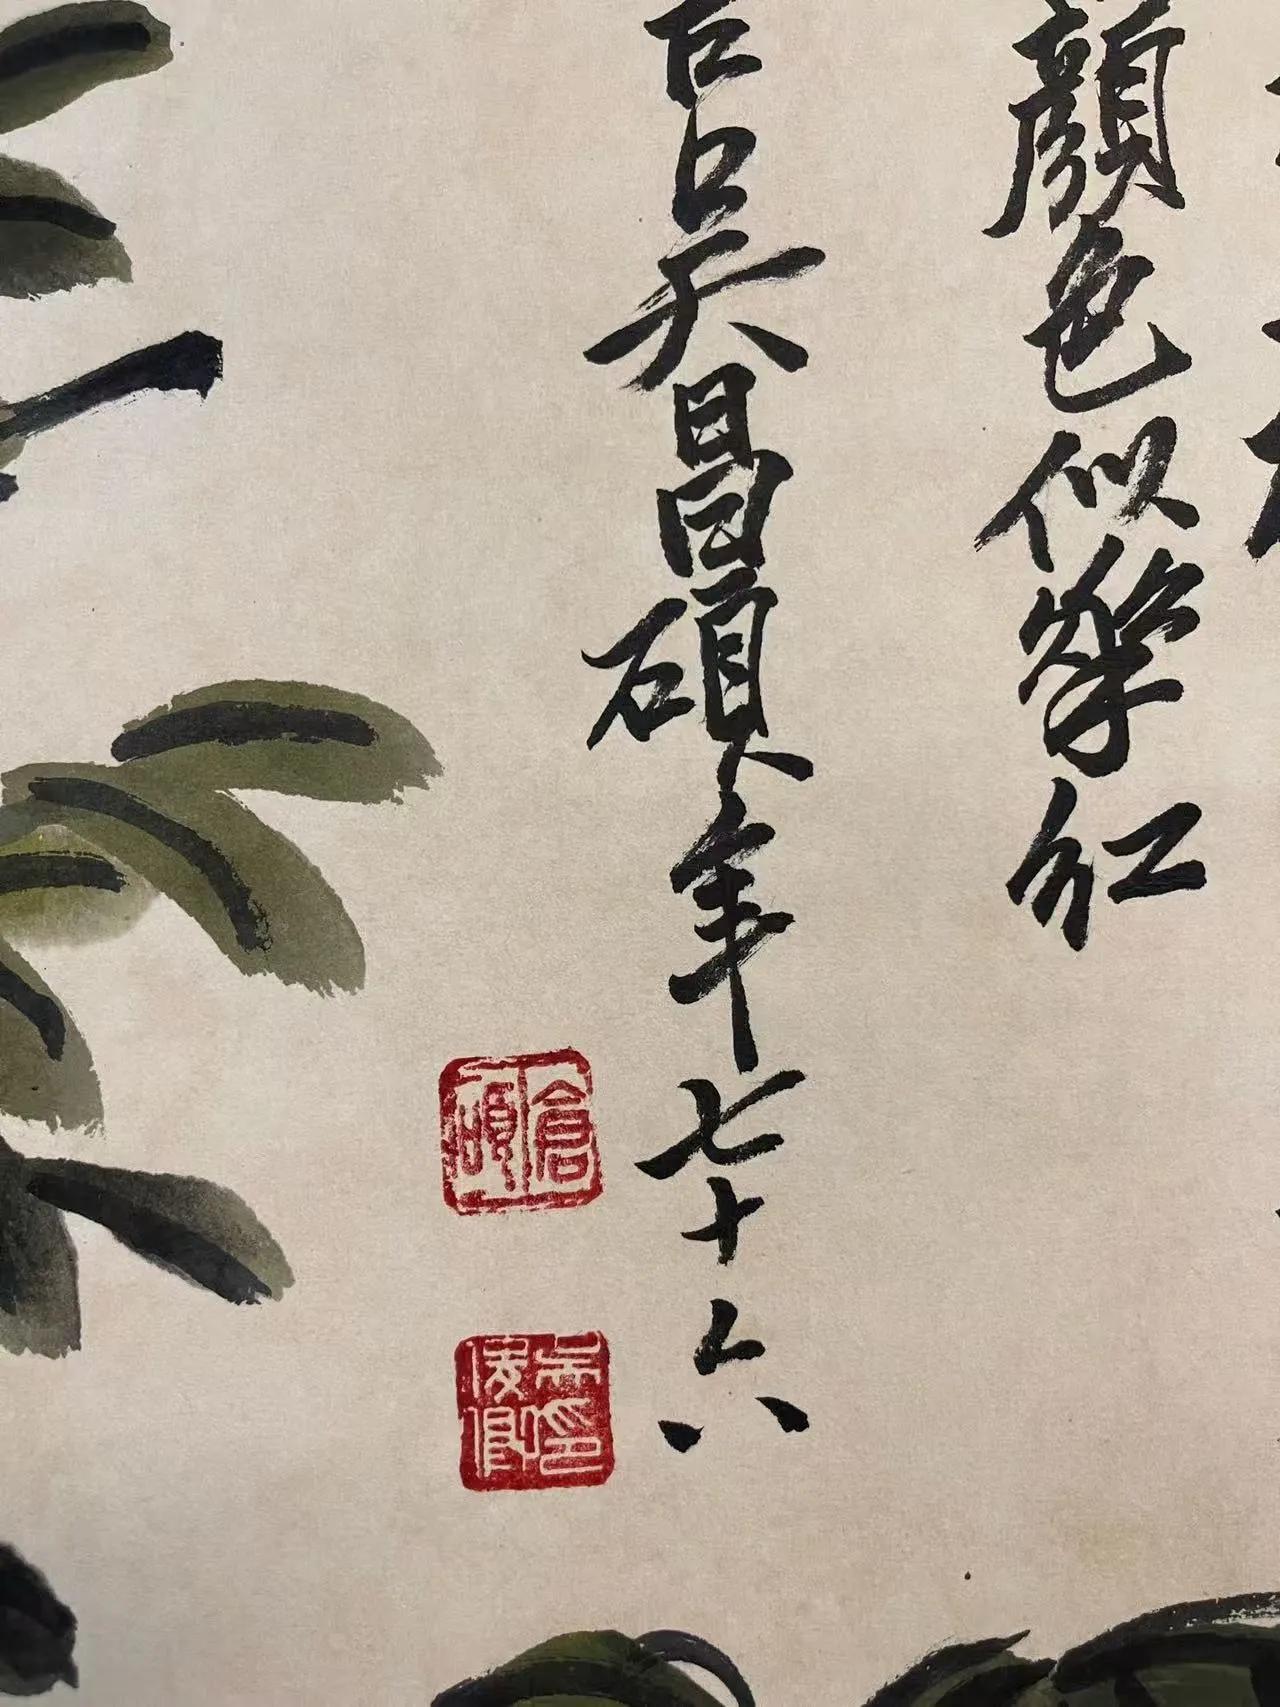 顏色似紅
吳昌碩年七十六
倉碩
吳俊卿印